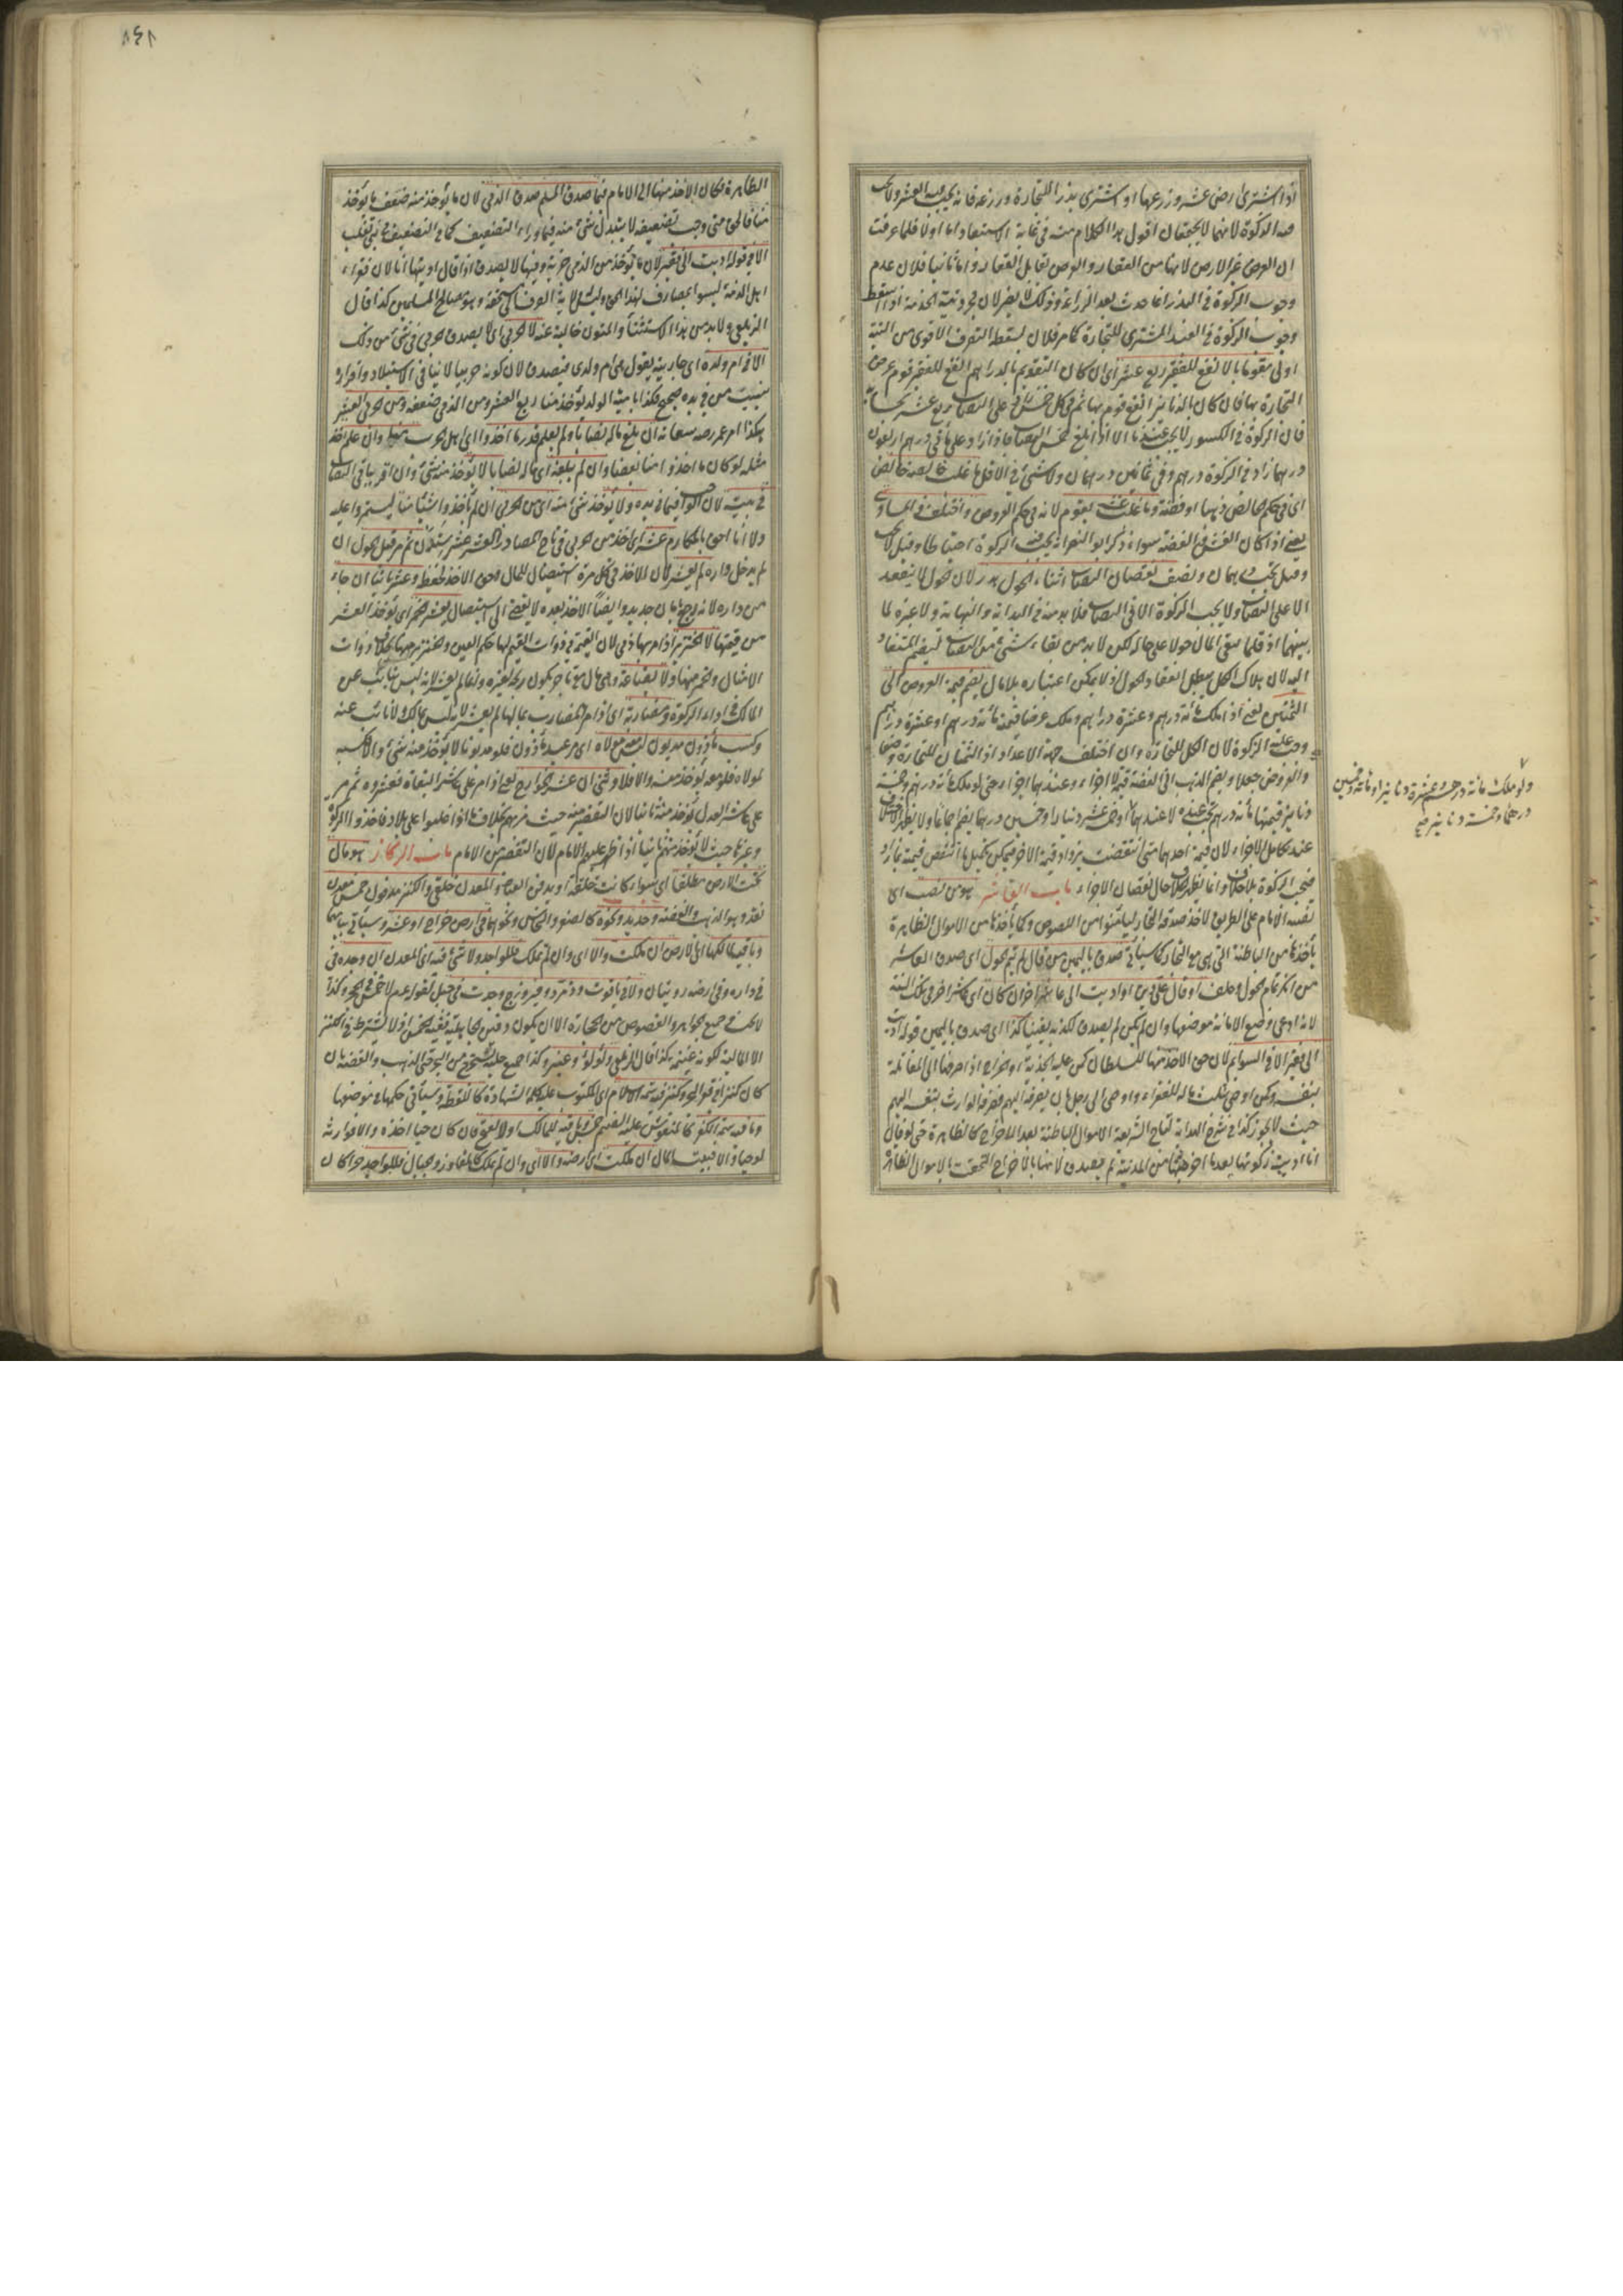 اذا اشترى ارض عشر وزرعها او اشترى بذرا للتجارة وزرعه فانه يجب فيه العشر ولا تجب
فيه الزكوة لانهما لا يجتمعان اقول هذا الكلام منه فى غاية الاستبعاد اما اولا فلما عرفت
ان العرض غير الارض لانها من العقار والعرض تقابل العقار واما ثانيا فلان عدم
وجوب الزكوة فى البذر انما حدث بعد الزراعة وذلك لا يضر لان مجرد نية الخدمة اذا اسقط
وجوب الزكوة فى العبد المشترى للتجارة كما مر فلان يسقط التصرف الاقوى من النية
اولى مقوما بالانفع للفقير ربع عشر اى ان كان التقويم بالدراهم انفع للفقير قوم عرض
التجارة بها وان كان بالدنانير انفع قوم بها ثم فى كل خمس زاد على النصاب ربع عشر بحسابه
فان الزكوة فى الكسور لا تجب عندنا الا اذا بلغ خمس النصاب فاذا زاد على مأتى درهم اربعون
درهما زاد فى الزكوة درهم وفى ثمانين درهمان ولا شئ فى الاقل ما غلب خالصه خالص
اى فى حكم خالص ذهبا او فضة وما غلب غشه يقوم لانه فى حكم العروض واختلف فى المساوى
يعنى اذا كان الغش والفضة سواء ذكر ابو النصر انه يجب فيه الزكوة احتياطا وقيل لا تجب
وقيل يجب درهمان ونصف نقصان النصاب اثناء الحول هدر لان الحول لا ينعقد
الا على النصاب ولا يجب الزكوة الا فى النصاب فلا بد منه فى البداية والنهاية ولا عبرة لما
بينهما اذ قلما يبقى المال حولا على حاله لكن لا بد من بقاء شئ من النصاب ليضم المستفاد
اليه لان هلاك الكل يبطل انعقاد الحول اذ لا يمكن اعتباره بلا مال يضم قيمة العروض الى
الثمنين يعنى اذا ملك مأة درهم وعشرة دراهم وملك عرضا قيمته مأة درهم او عشرة دراهم
وجب عليه الزكوة لان الكل للتجارة وان اختلف جهة الاعداد اذ الثمنان للتجارة وضعا
والعروض جعلا ويضم الذهب الى الفضة قيمة لا اجزاء وعندهما اجزاء حتى لو ملك مأة درهم وخمسة
دنانير قيمتها مأة درهم تجب عنده لا عندهما او خمسة عشر دينارا وخمسين درهما يضم اجماعا ولا يظهر الاختلاف
عند تكامل الاجزاء لان قيمة احدهما متى انتقصت يزداد قيمة الاخر فيمكن تكميل ما انتقص قيمته بما زاد
فتجب الزكوة بلا خلاف وانما يظهر الخلاف حال نقصان الاجزاء باب العاشر هو من نصب اى
نصبه الامام على الطريق لاخذ صدقة التجار ليأمنوا من اللصوص وكما يأخذها من الاموال الظاهرة
يأخذها من الباطنة التى هى مع التجار كما سيأتى صدق باليمين من قال لم يتم الحول اى صدق العاشر
من انكر تمام الحول وحلف او قال على دين او اديت الى عاشر اخر ان كان اى عاشر اخر فى تلك السنة
لانه ادعى وضع الامانة موضعها وان لم يكن لم يصدق لكذبه يقينا كذا اى صدق باليمين قوله اديت
الى فقير الا فى السوائم لان حق الاخذ منها للسلطان كمن عليه الجزية او الخراج اذا صرفها الى المقاتلة
بنفسه وكمن اوصى بثلث ماله للفقراء واوصى الى رجل بان يصرفه اليهم فصرفه الوارث بنفسه اليهم
حيث لا يجوز كذا فى شرح الهداية لتاج الشريعة الاموال الباطنة بعد الاخراج كالظاهرة حتى لو قال
انا اديت زكوتها بعد ما اخرجتها من المدينة لم يصدق لانها بالاخراج التحقت بالاموال الظاهرة
ولو ملك مأة درهم وعشرة دنانير او مأة وخمسين
درهما وخمسة دنانير صح
الظاهرة فكان الاخذ منها الى الامام فيما صدق المسلم صدق الذمى لان ما يؤخذ منه ضعف ما يؤخذ
منا فالحق متى وجب تضعيفه لا يتبدل شئ منه فيما وراء التضعيف كما فى التضعيف على بنى تغلب
الا فى قوله اديت الى فقير لان ما يؤخذ من الذمى جزية وفيها لا يصدق اذا قال اديتها انا لان فقراء
اهل الذمة ليسوا بمصارف لهذا الحق وليس له ولاية الصرف الى مستحقه وهو مصالح المسلمين كذا قال
الزيلعى ولا بد من هذا الاستثناء والمتون خالية عنه لا الحربى اى لا يصدق الحربى فى شئ من ذلك
الا فى ام ولده اى جارية يقول هى ام ولدى فيصدق لان كونه حربيا لا ينافى الاستيلاد واقراره
بنسب من فى يده صحيح فكذا بامية الولد يؤخذ منا ربع العشر ومن الذمى ضعفه ومن الحربى العشر
هكذا امر عمر رضه سعاته ان بلغ ماله نصابا ولم يعلم قدر ما اخذوا اى اهل الحرب منا وان علم اخذ
مثله لو كان ما اخذوا منا بعضا وان لم يبلغه اى ماله نصابا لا يؤخذ منه شئ وان اقر بباقى النصاب
فى بيته لان الواجب فيما فى يده ولا يؤخذ شئ منه اى من الحربى ان لم يأخذوا شيئا منا ليستمروا عليه
ولانا احق بالمكارم عشر اى اخذ من الحربى فى تاج المصادر العشر عشر ستدن ثم مر قبل الحول ان
لم يدخل داره لم يعشر لان الاخذ فى كل مرة استيصال للمال وحق الاخذ لحفظه وعشر ثانيا ان جاء
من داره لانه رجع بامان جديد وايضا الاخذ بعده لا يفضى الى الاستيصال يعشر الخمر اى يؤخذ العشر
من قيمتها لا الخنزير اذا مر بهما ذمى لان القيمة فى ذوات القيم لها حكم العين والخنزير منها بخلاف ذوات
الامثال والخمر منها ولا بضاعة وهى مال مع تاجر يكون ربحه لغيره وانما لم يعشر لانه ليس بنائب عن
المالك فى اداء الزكوة ومضاربة اى اذا مر المضارب بمالها لم يعشر لانه ليس بمالك ولا نائب عنه
وكسب مأذون مديون ليس معه مولاه اى مر عبد مأذون فلو مديونا لا يؤخذ منه شئ والا كسبه
لمولاه فلو معه يؤخذ منه والا فلا وثنى ان عشر الخوارج يعنى اذا مر على عاشر البغاة فعشروه ثم مر
على عاشر العدل يؤخذ منه ثانيا لان التقصير منه حيث مر بهم بخلاف ما اذا غلبوا على بلاد فاخذوا الزكوة
وغيرها حيث لا يؤخذ منهم ثانيا اذا ظهر عليهم الامام لان التقصير من الامام باب الركاز هو مال
تحت الارض مطلقا اى سواء كانت خلقة او بدفن العباد والمعدن خلقى والكنز مدفون خمس معدن
نقد وهو الذهب والفضة وحديد ونحوه كالصفر والنحاس ونحوهما فى ارض خراج او عشر وسيأتى بيانهما
وباقيه لمالكها اى الارض ان ملكت والا اى وان لم تملك فللواجد ولا شئ فيه اى المعدن ان وجده فى
فى داره وفى ارضه روايتان ولا فى ياقوت وزمرد وفيروزج وجدت فى جبل لقوله عم لا خمس فى الحجر وكذا
لا يجب فى جميع الجواهر والفصوص من الحجارة الا ان يكون دفين الجاهلية ففيه الخمس اذ لا يشترط فى الكنز
الا المالية لكونه غنيمة هكذا قال الزيلعى ولؤلؤ وعنبر وكذا جميع حلية تستخرج من البحر حتى الذهب والفضة بان
كان كنزا فى قعر البحر وكنز فيه سمة الاسلام اى المكتوب عليه كلمة الشهادة كاللقطة وسيأتى حكمها فى موضعها
وما فيه سمة الكفر كالمنقوش عليه الصنم خمس وباقيه للمالك اول الفتح فان كان حيا اخذه والا فوارثه
لو حيا والا فبيت المال ان ملكت اى ارضه والا اى وان لم تملك كالمفاوز والجبال فللواجد حرا كان